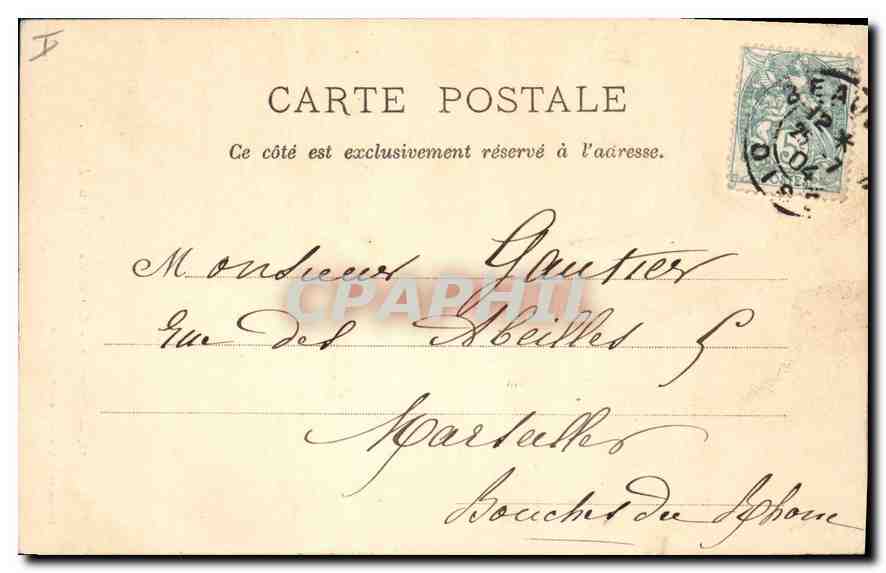 CARTE POSTALE
Ce côté est exclusivement réservé à l'adresse.
Monsieur Gautier
Rue des Abeilles 5
Marseille
Bouches du Rhone
CPAPHIL
5
04
OIS